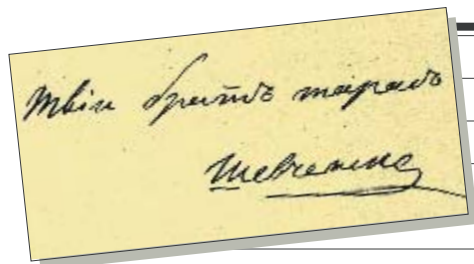 твій братъ тарасъ
Шевченко